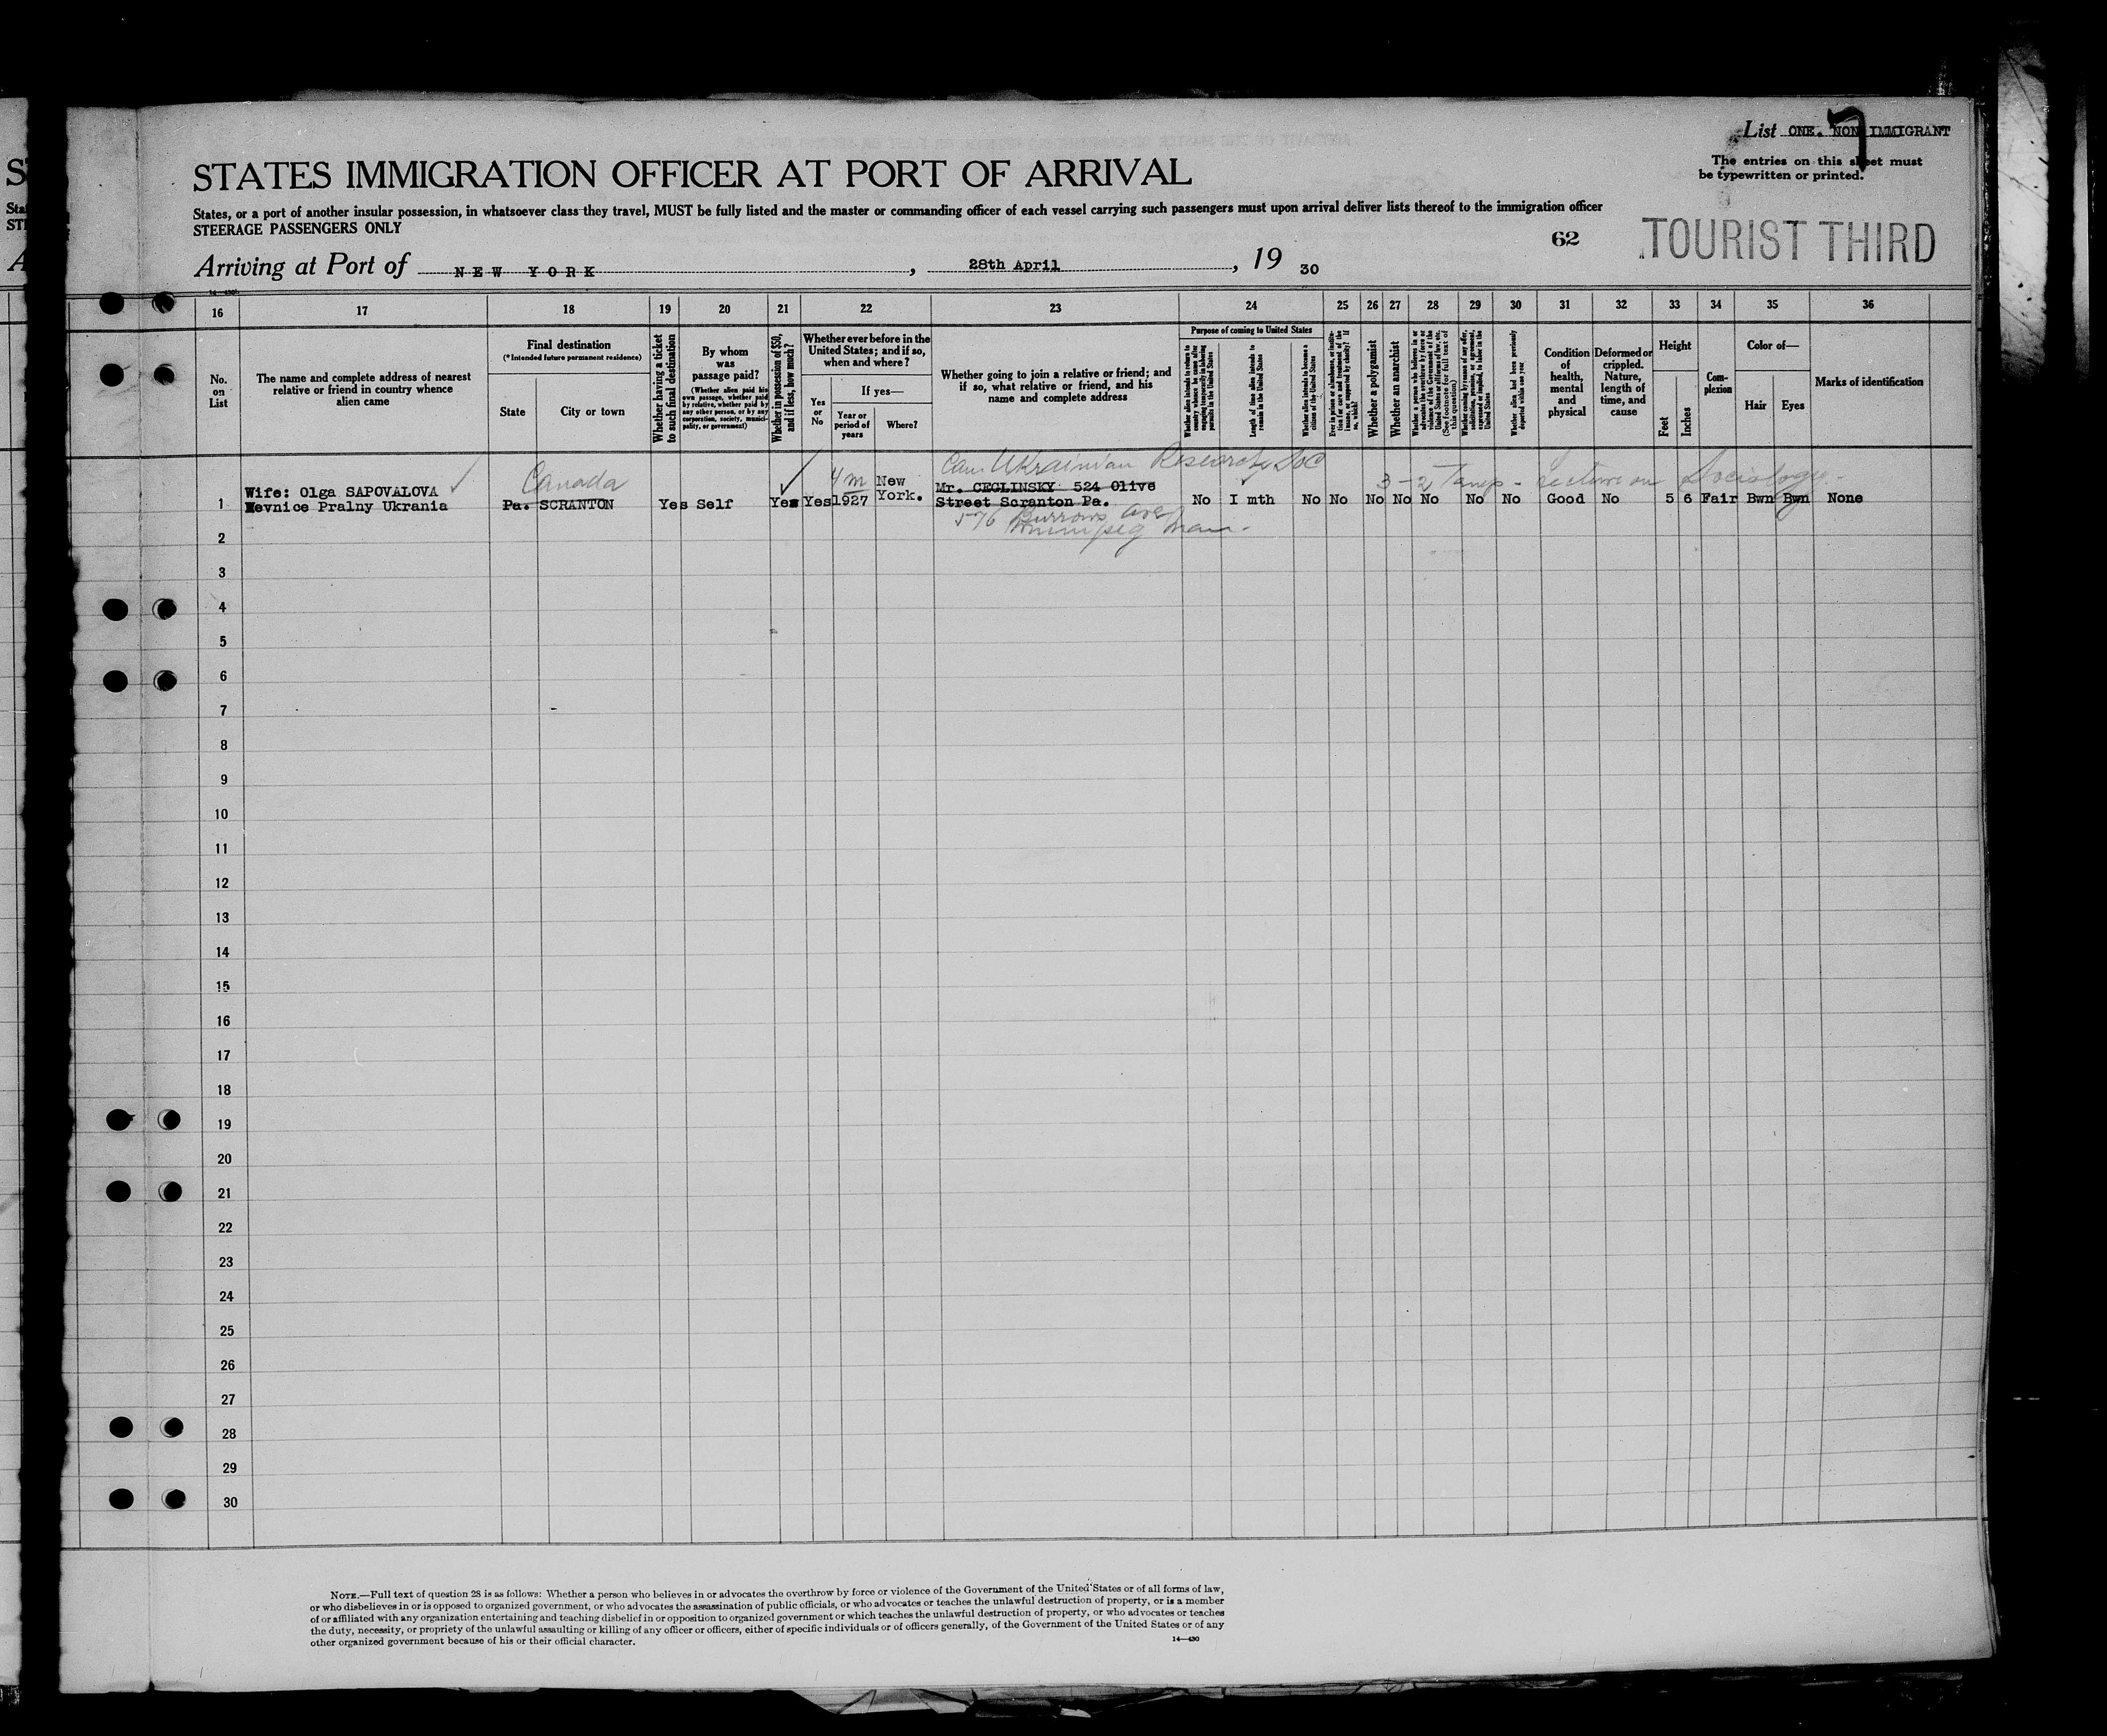 List ONE. NON IMMIGRANT
7
The entries on this sheet must
be typewritten or printed.
STATES IMMIGRATION OFFICER AT PORT OF ARRIVAL
States, or a port of another insular possession, in whatsoever class they travel, MUST be fully listed and the master or commanding officer of each vessel carrying such passengers must upon arrival deliver lists thereof to the immigration officer
STEERAGE PASSENGERS ONLY
62
TOURIST THIRD
Arriving at Port of NEW YORK, 28th April, 19 30
16 17 18 19 20 21 22 23 24 25 26 27 28 29 30 31 32 33 34 35 36
No.
on
List
The name and complete address of nearest
relative or friend in country whence
alien came
Final destination
(*Intended future permanent residence)
State
City or town
Whether having a ticket
to such final destination
By whom
was
passage paid?
(Whether alien paid his
own passage, whether paid
by relative, whether paid by
any other person, or by any
corporation, society, munici-
pality, or government)
Whether in possession of $50,
and if less, how much?
Whether ever before in the
United States; and if so,
when and where?
Yes
or
No
If yes—
Year or
period of
years
Where?
Whether going to join a relative or friend; and
if so, what relative or friend, and his
name and complete address
Purpose of coming to United States
Whether alien intends to return to
country whence he came after
engaging temporarily in laboring
pursuits in the United States
Length of time alien intends to
remain in the United States
Whether alien intends to become a
citizen of the United States
Ever in prison or almshouse, or institu-
tion for care and treatment of the
insane, or supported by charity? If
so, which?
Whether a polygamist
Whether an anarchist
Whether a person who believes in or
advocates the overthrow by force or
violence of the Government of the
United States or all forms of law, etc.
(See footnote for full text of
this question)
Whether coming by reason of any offer,
solicitation, promise, or agreement,
expressed or implied, to labor in the
United States
Whether alien had been previously
deported within one year
Condition
of
health,
mental
and
physical
Deformed or
crippled.
Nature,
length of
time, and
cause
Height
Feet
Inches
Com-
plexion
Color of—
Hair
Eyes
Marks of identification
Can Ukrainian Research Soc
Canada
4 m
3-2 Temp - lecture on Sociology
Wife: Olga SAPOVALOVA
New
Mr. CEGLINSKY 524 Olive
1 Revnice Pralny Ukrania Pa. SCRANTON Yes Self Yes Yes 1927 York. Street Scranton Pa. No I mth No No No No No No No Good No 5 6 Fair Bwn Bwn None
576 Burrows Ave
Winnipeg Man.
2
3
4
5
6
7
8
9
10
11
12
13
14
15
16
17
18
19
20
21
22
23
24
25
26
27
28
29
30
NOTE.—Full text of question 28 is as follows: Whether a person who believes in or advocates the overthrow by force or violence of the Government of the United States or of all forms of law,
or who disbelieves in or is opposed to organized government, or who advocates the assassination of public officials, or who advocates or teaches the unlawful destruction of property, or is a member
of or affiliated with any organization entertaining and teaching disbelief in or opposition to organized government or which teaches the unlawful destruction of property, or who advocates or teaches
the duty, necessity, or propriety of the unlawful assaulting or killing of any officer or officers, either of specific individuals or of officers generally, of the Government of the United States or of any
other organized government because of his or their official character.
14—430